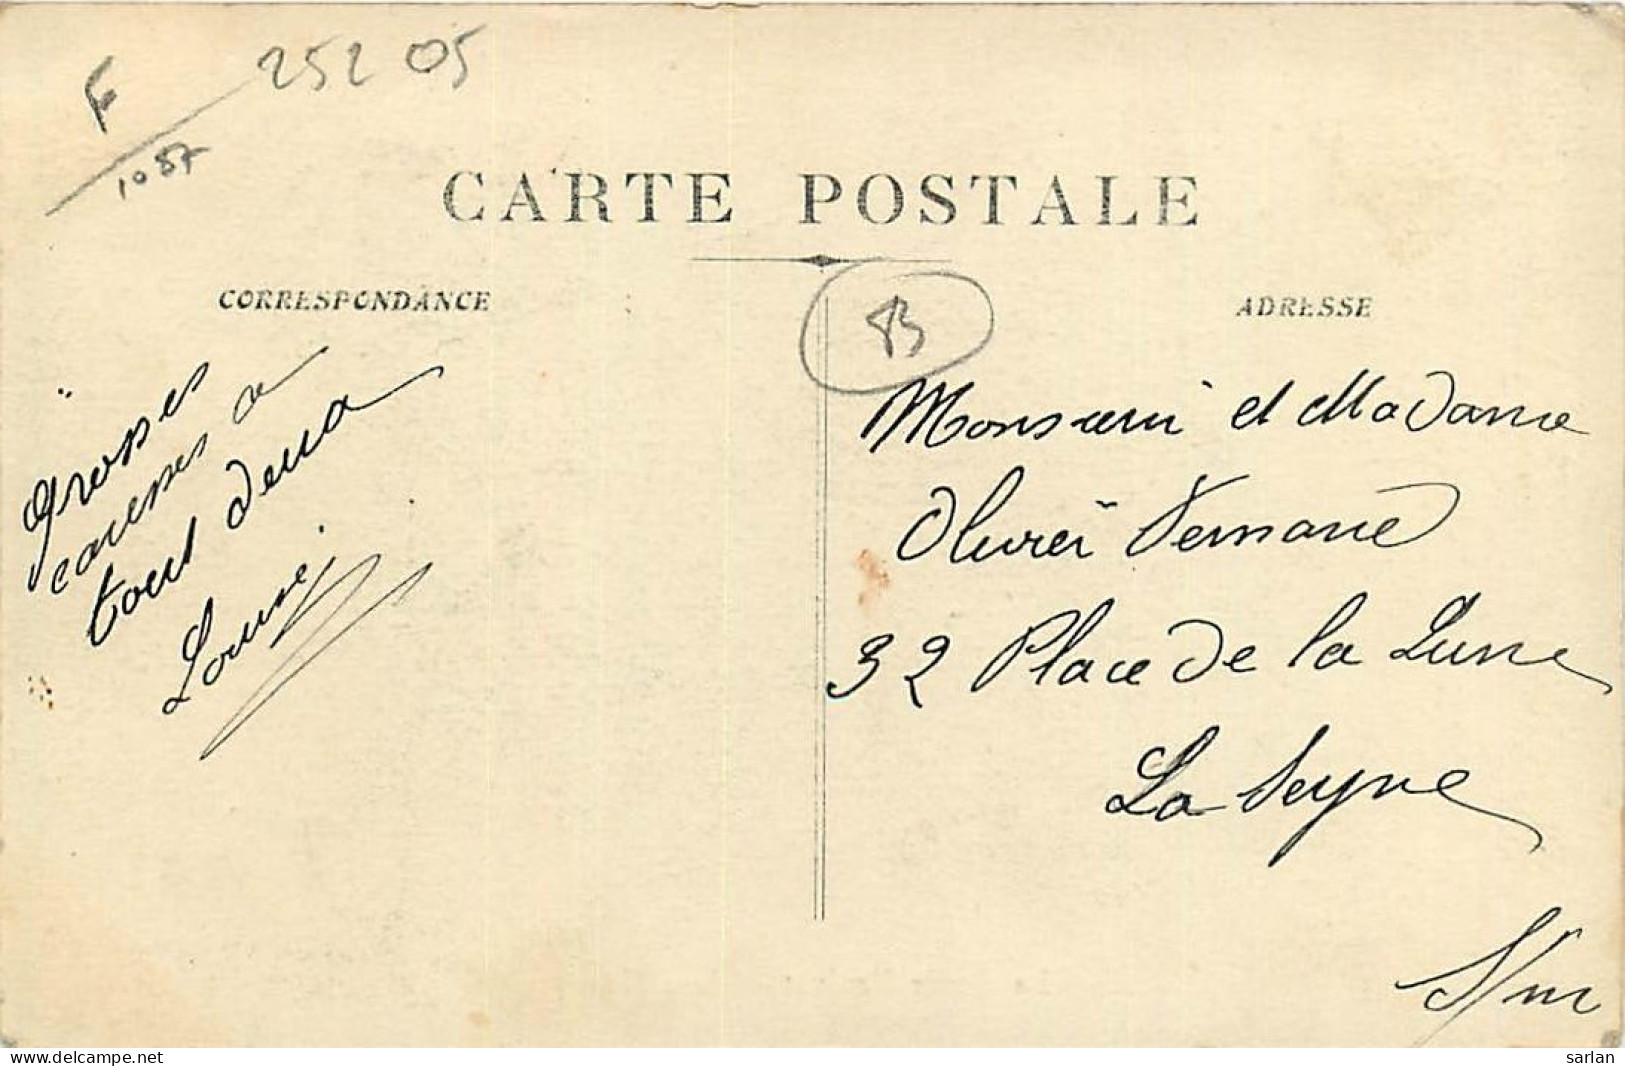 F 252 05
1087
CARTE POSTALE
CORRESPONDANCE
ADRESSE
B
Grosses
caresses a
tout deux
Louise
Monsieur et Madame
Olivier
32 Place de la Lune
La Seyne
S/m
www.delcampe.net
sarlan